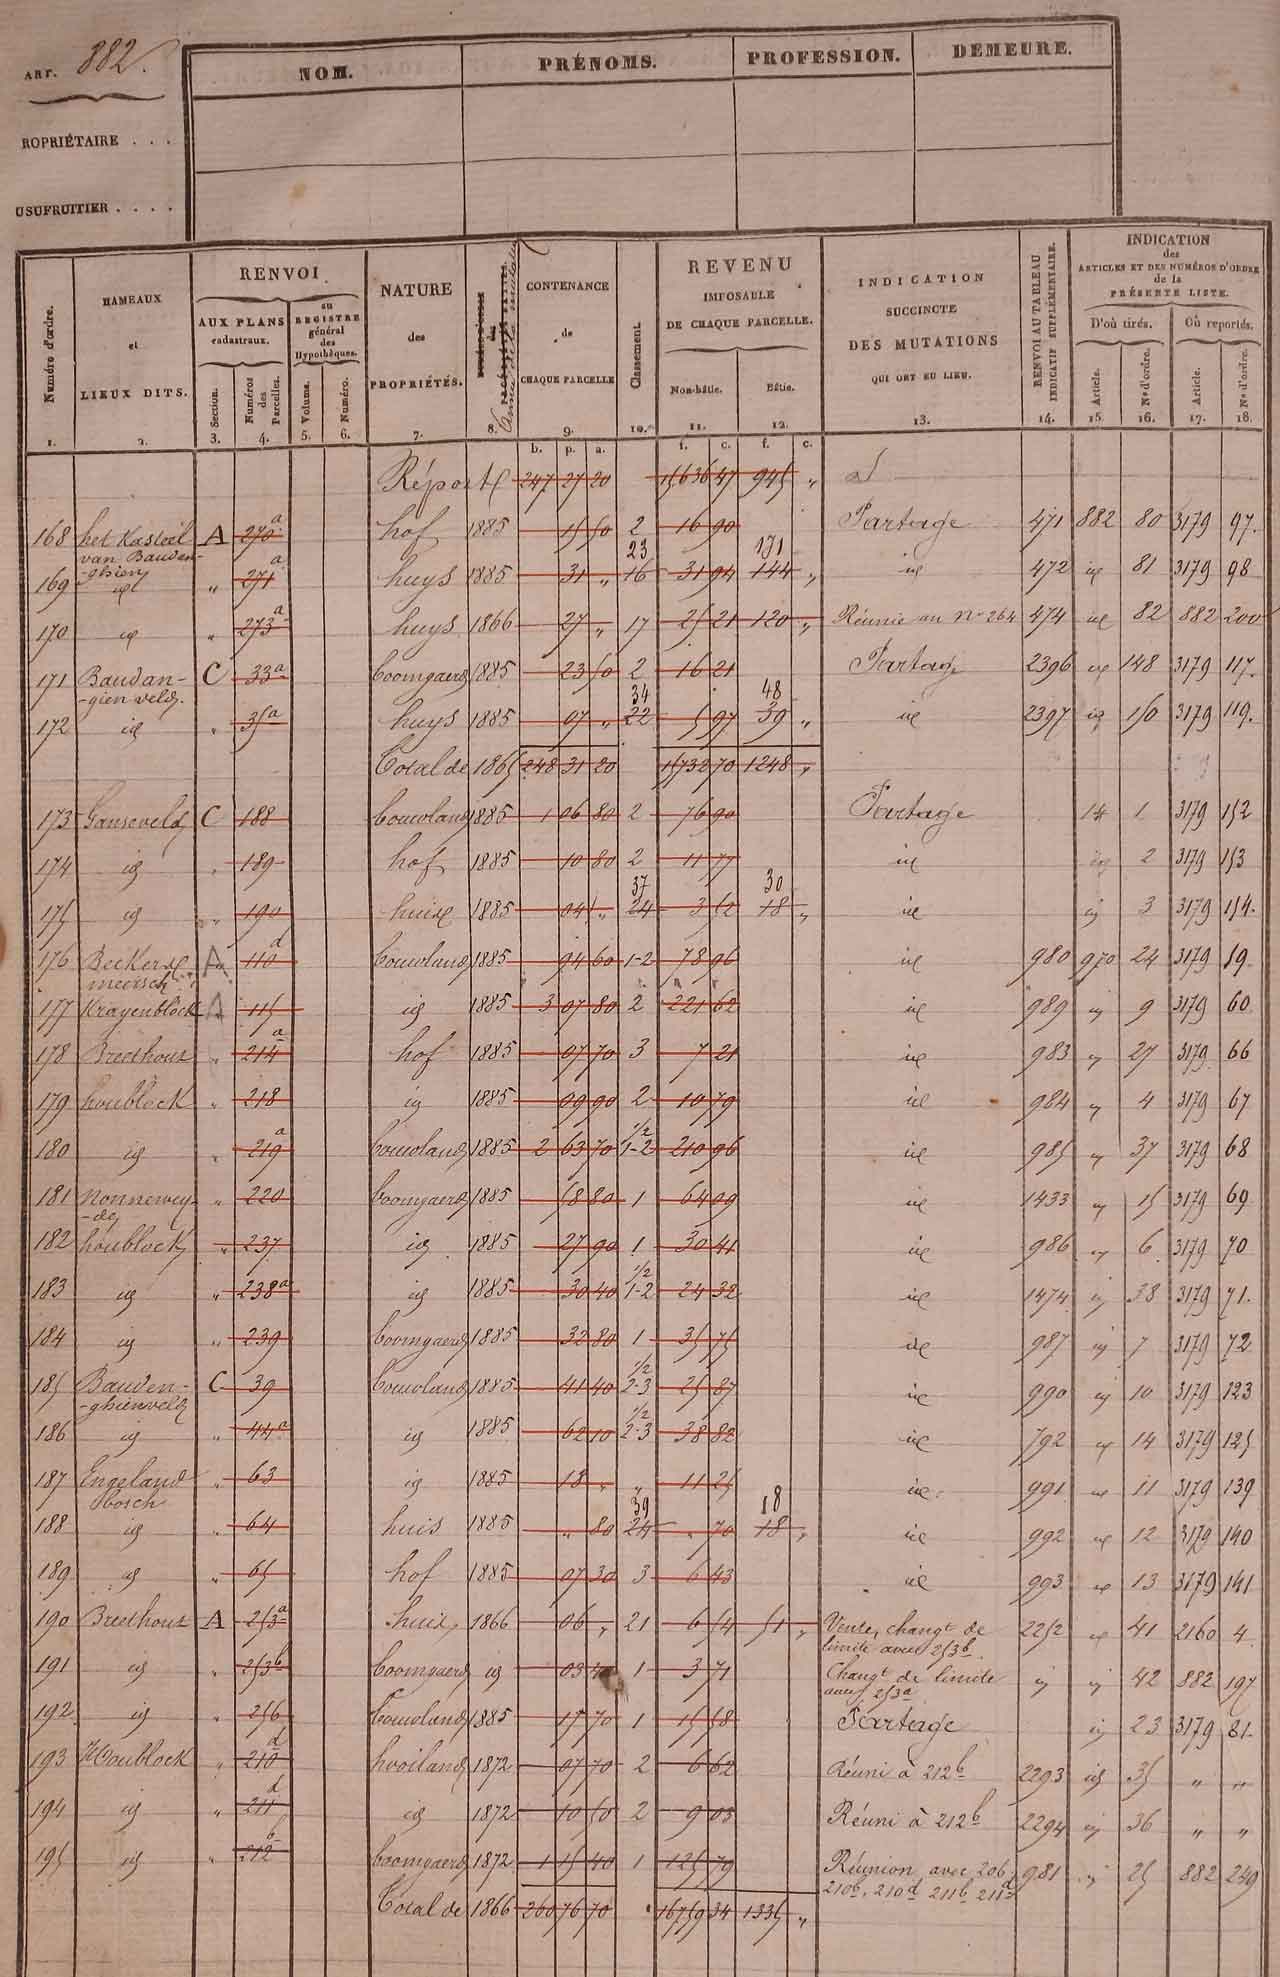 ART. 882.
NOM. PRÉNOMS. PROFESSION. DEMEURE.
ROPRIÉTAIRE . . .
USUFRUITIER . . . .
Numéro d'ordre. 1.
HAMEAUX et LIEUX DITS. 2.
RENVOI
AUX PLANS cadastraux.
Section. 3.
Numéros des Parcelles. 4.
au REGISTRE général des Hypothèques.
Volume. 5.
Numéro. 6.
NATURE des PROPRIÉTÉS. 7.
Année de la mutation 8.
CONTENANCE de CHAQUE PARCELLE 9.
Classement. 10.
REVENU IMPOSABLE DE CHAQUE PARCELLE.
Non-bâtie. 11.
Bâtie. 12.
INDICATION SUCCINCTE DES MUTATIONS QUI ONT EU LIEU. 13.
RENVOI AU TABLEAU INDICATIF SUPPLÉMENTAIRE. 14.
INDICATION des ARTICLES ET DES NUMÉROS D'ORDRE de la PRÉSENTE LISTE.
D'où tirés. Où reportés.
Article. 15. Nos d'ordre. 16. Article. 17. Nos d'ordre. 18.
b. p. a. f. c. f. c.
Réport 247 27 20 15636 47 945 "
168 het Kasteel van Bauden-ghien A 270a hof 1885 15 50 2 16 90 Partage 471 882 80 3179 97.
169 id " 271a huys 1885 31 " 16 23 31 94 144 171 " id 472 id 81 3179 98
170 id " 273a huys 1866 27 " 17 25 21 120 " Réunie au No 264 474 id 82 882 200
171 Baudan-gien veld. C 33a boomgaerd 1885 23 50 2 16 21 Partage 2396 id 148 3179 117.
172 id " 35a huys 1885 07 " 22 34 5 97 39 48 " id 2397 id 150 3179 119.
Total de 1865 248 31 20 15732 70 1248 "
173 Ganseveld C 188 bouwland 1885 1 06 80 2 76 90 Partage 14 1 3179 152
174 id " 189 hof 1885 10 80 2 11 77 id id 2 3179 153
175 id " 190 huis 1885 04 " 24 37 3 52 18 30 " id id 3 3179 154.
176 Beckers meersch A 110d bouwland 1885 94 60 1-2 78 96 id 980 970 24 3179 59.
177 Krayenblock A 115 id 1885 3 07 80 2 221 62 id 989 id 9 3179 60
178 Breethout " 214a hof 1885 07 70 3 7 21 id 983 id 27 3179 66
179 houblock " 218 id 1885 09 90 2 10 79 id 984 id 4 3179 67
180 id " 219a bouwland 1885 2 63 70 1/2 1-2 210 96 id 985 id 37 3179 68
181 Nonnewey-de " 220 boomgaerd 1885 58 80 1 64 09 id 1433 id 15 3179 69
182 houblock " 237 id 1885 27 90 1 30 41 id 986 id 6 3179 70
183 id " 238a id 1885 30 40 1/2 1-2 24 32 id 1474 id 38 3179 71.
184 id " 239 boomgaerd 1885 32 80 1 35 75 id 987 id 7 3179 72
185 Bauden-ghienveld C 39 bouwland 1885 41 40 1/2 2-3 25 87 id 990 id 10 3179 123
186 id " 44a id 1885 62 10 1/2 2-3 38 82 id 792 id 14 3179 125
187 Engeland bosch " 63 id 1885 18 " " 11 25 id 991 id 11 3179 139
188 id " 64 huis 1885 " 80 24 39 " 70 18 18 " id 992 id 12 3179 140
189 id " 65 hof 1885 07 30 3 6 43 id 993 id 13 3179 141
190 Breethout A 253a huis 1866 06 " 21 6 54 51 " Vente, changt de limite avec 253b 2252 id 41 2160 4
191 id " 253b boomgaerd id 03 40 1 3 71 Changt de limite avec 253a id id 42 882 197
192 id " 256 bouwland 1885 17 70 1 15 58 Partage id 23 3179 81
193 Houblock " 210d hooiland 1872 07 70 2 6 62 Réuni à 212b 2293 id 35 " "
194 id " 211d id 1872 10 50 2 9 03 Réuni à 212b 2294 id 36 " "
195 id " 212b boomgaerd 1872 1 15 40 1 125 79 Réunion avec 206, 210b, 210d 211b 211d 981 id 25 882 249
Total de 1866 260 76 70 16759 34 1335 "